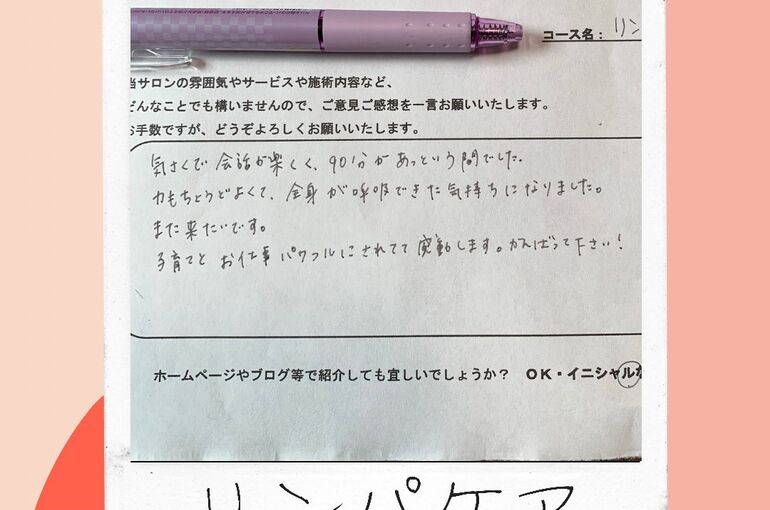 コース名： リン
当サロンの雰囲気やサービスや施術内容など、
どんなことでも構いませんので、ご意見ご感想を一言お願いいたします。
お手数ですが、どうぞよろしくお願いいたします。
気さくで会話が楽しく、90分があっという間でした。
力もちょうどよくて、全身が呼吸できた気持ちになりました。
また来たいです。
子育てとお仕事パワフルにされてて感動します。がんばって下さい！
ホームページやブログ等で紹介しても宜しいでしょうか？ OK・イニシャルな
リンパケア